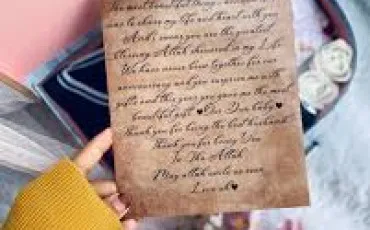 most beautiful
was to share my life and heart with you
And I swear you are the greatest
blessing Allah showered in my Life
We have never been together for our
anniversary and you surprise me with
gifts and this year you gave me the most
beautiful gift ♥ Our Dua baby ♥
Thank you for being the best husband
Thank you for being You
In Sha Allah
May allah unite us soon
Love uh ♥